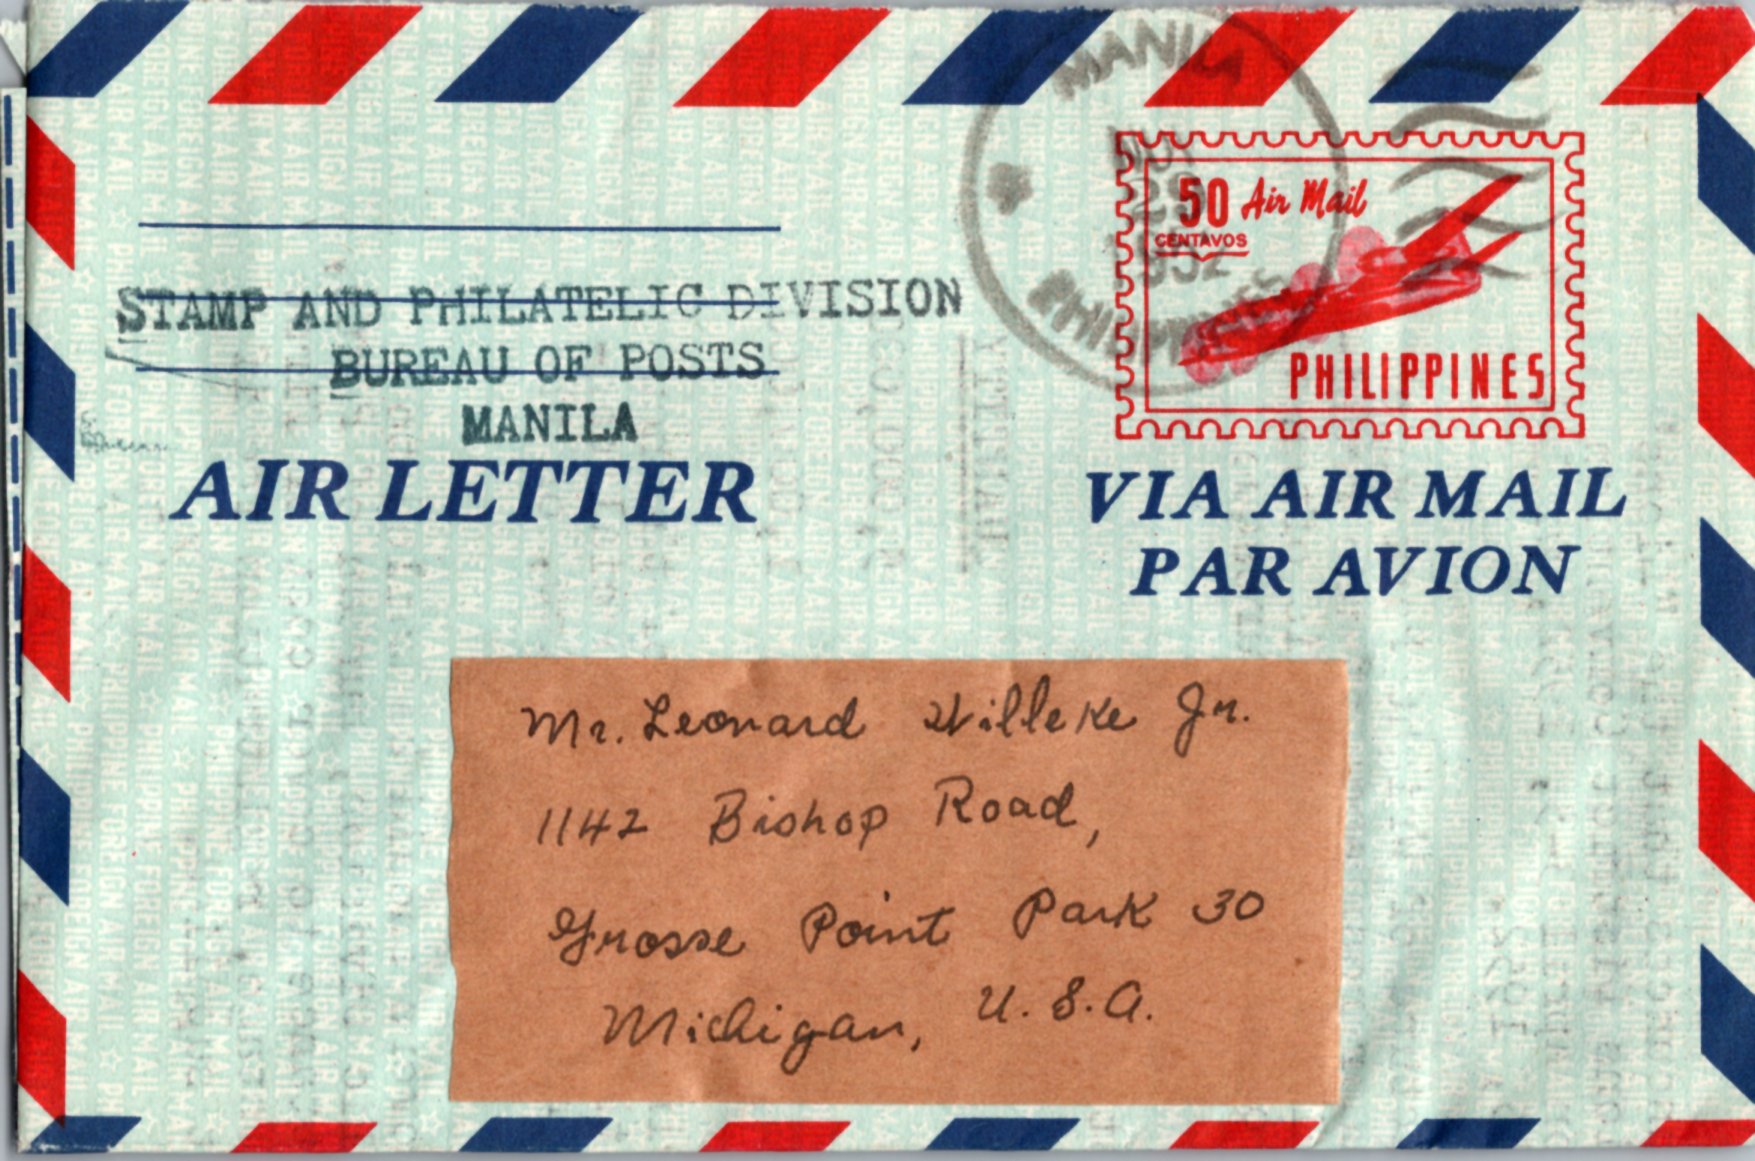 MANILA
NOV
29
1952
PHILIPPINES
50 Air Mail
CENTAVOS
PHILIPPINES
STAMP AND PHILATELIC DIVISION
BUREAU OF POSTS
MANILA
AIR LETTER
VIA AIR MAIL
PAR AVION
Mr. Leonard Willeke Jr.
1142 Bishop Road,
Grosse Point Park 30
Michigan, U.S.A.